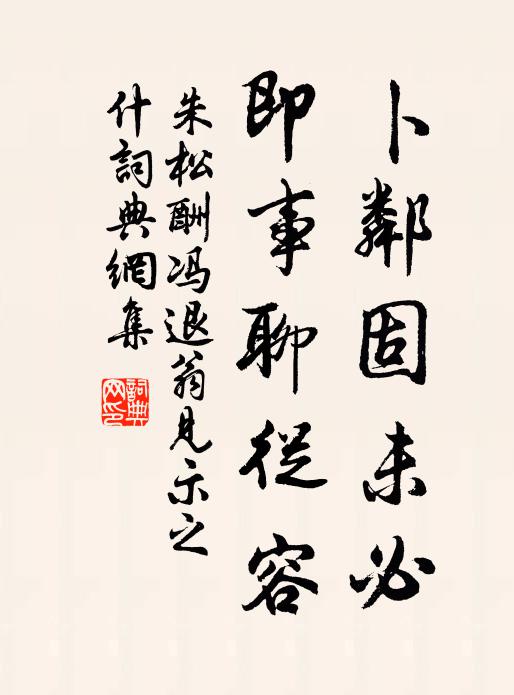 卜鄰固未必
即事聊從容
朱松酬冯退翁見示之
什詞典網集
詞典网印